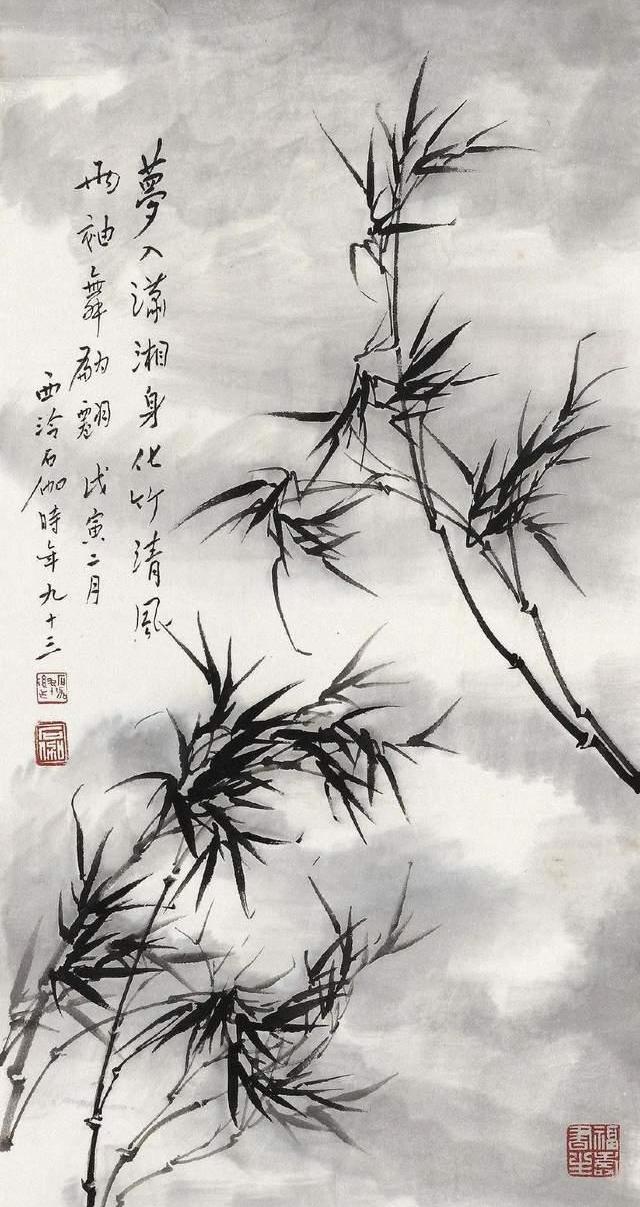 夢入瀟湘身化竹清風
兩袖舞翩翾戊寅二月
西泠石伽時年九十三
石伽